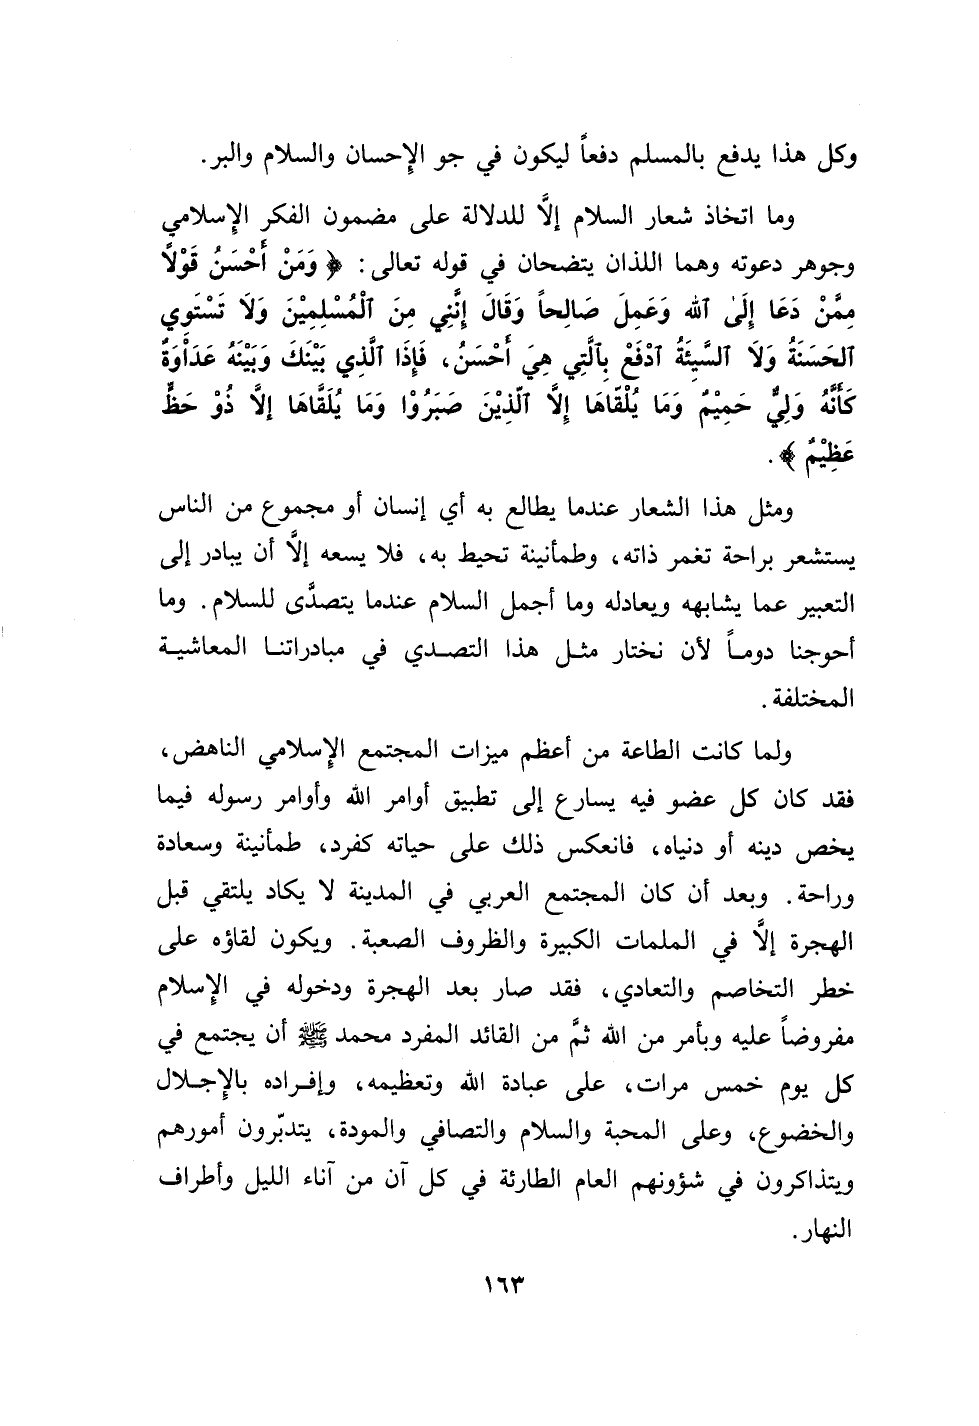 وكل هذا يدفع بالمسلم دفعاً ليكون في جو الإحسان والسلام والبر.
وما اتخاذ شعار السلام إلَّا للدلالة على مضمون الفكر الإسلامي
وجوهر دعوته وهما اللذان يتضحان في قوله تعالى: ﴿ وَمَنْ أَحْسَنُ قَوْلاً
مِمَّنْ دَعَا إِلَىٰ ٱلله وَعَمِلَ صَالِحاً وَقَالَ إِنَّنِي مِنَ ٱلْمُسْلِمِيْنَ وَلَا تَسْتَوِي
ٱلحَسَنَةُ وَلَا ٱلسَّيِئَةُ ٱدْفَعْ بِٱلَّتِي هِيَ أَحْسَنُ، فَإِذَا ٱلَّذِي بَيْنَكَ وَبَيْنَهُ عَدَاْوَةٌ
كَأَنَّهُ وَلِيٌّ حَمِيْمٌ وَمَا يُلْقّاهَا إِلَّا ٱلّذِيْنَ صَبَرُوْا وَمَا يُلَقَّاهَا إلَّا ذُوْ حَظٍّ
عَظِيْمٌ ﴾.
ومثل هذا الشعار عندما يطالع به أي إنسان أو مجموع من الناس
يستشعر براحة تغمر ذاته، وطمأنينة تحيط به، فلا يسعه إلَّا أن يبادر إلى
التعبير عما يشابهه ويعادله وما أجمل السلام عندما يتصدَّى للسلام. وما
أحوجنا دوماً لأن نختار مثل هذا التصدي في مبادراتنا المعاشية
المختلفة.
ولما كانت الطاعة من أعظم ميزات المجتمع الإسلامي الناهض،
فقد كان كل عضو فيه يسارع إلى تطبيق أوامر الله وأوامر رسوله فيما
يخص دينه أو دنياه، فانعكس ذلك على حياته كفرد، طمأنينة وسعادة
وراحة. وبعد أن كان المجتمع العربي في المدينة لا يكاد يلتقي قبل
الهجرة إلَّا في الملمات الكبيرة والظروف الصعبة. ويكون لقاؤه على
خطر التخاصم والتعادي، فقد صار بعد الهجرة ودخوله في الإسلام
مفروضاً عليه وبأمر من الله ثمَّ من القائد المفرد محمد ﷺ أن يجتمع في
كل يوم خمس مرات، على عبادة الله وتعظيمه، وإفراده بالإجلال
والخضوع، وعلى المحبة والسلام والتصافي والمودة، يتدبّرون أمورهم
ويتذاكرون في شؤونهم العام الطارئة في كل آن من آناء الليل وأطراف
النهار.
١٦٣